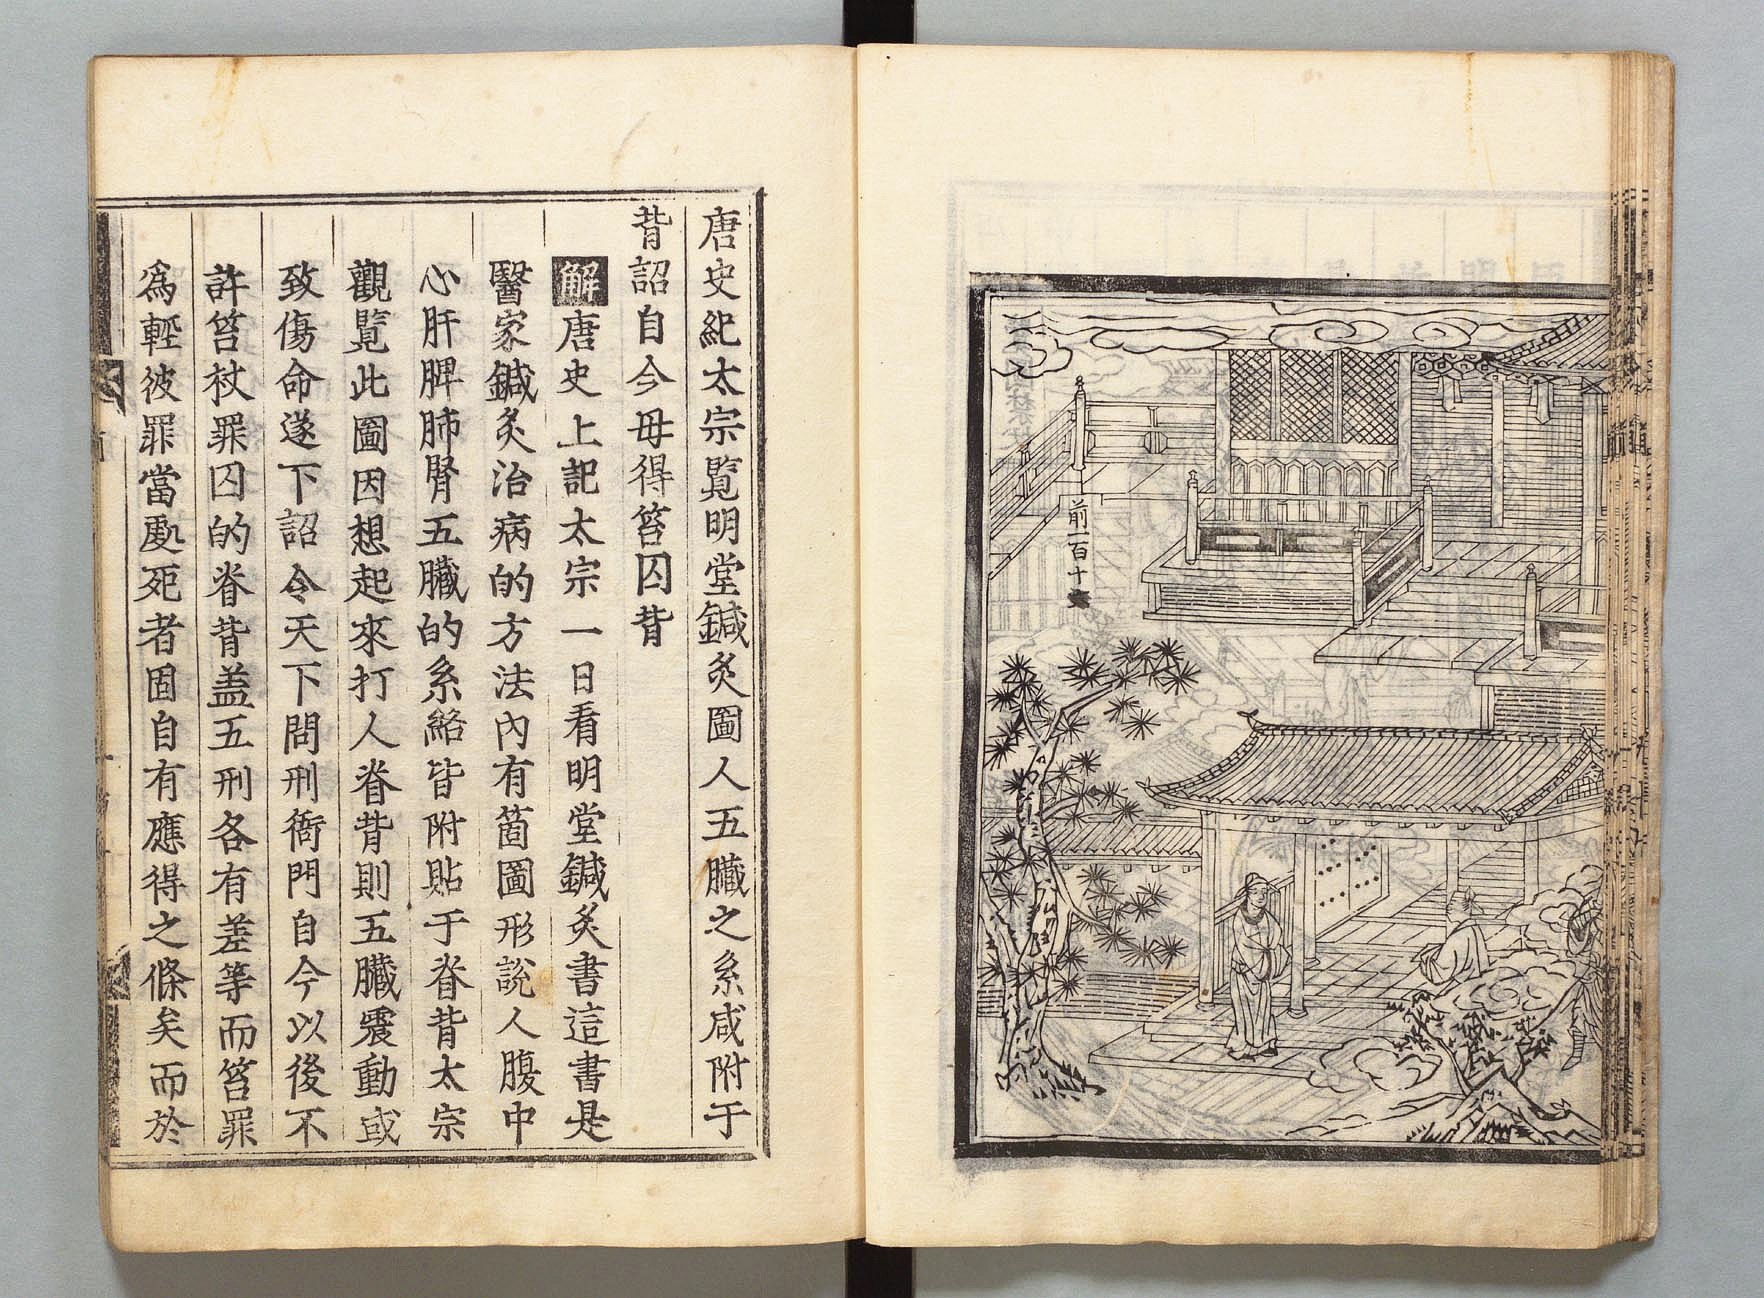 前一百十
唐史紀太宗覧明堂鍼灸圖人五臟之系咸附于
背詔自今毋得笞囚背
解唐史上記太宗一日看明堂鍼灸書這書是
醫家鍼灸治病的方法內有箇圖形說人腹中
心肝脾肺腎五臟的系絡皆附貼于脊背太宗
觀覧此圖因想起來打人脊背則五臟震動或
致傷命遂下詔令天下問刑衙門自今以後不
許笞杖罪囚的脊背盖五刑各有差等而笞罪
爲輕彼罪當處死者固自有應得之條矣而於